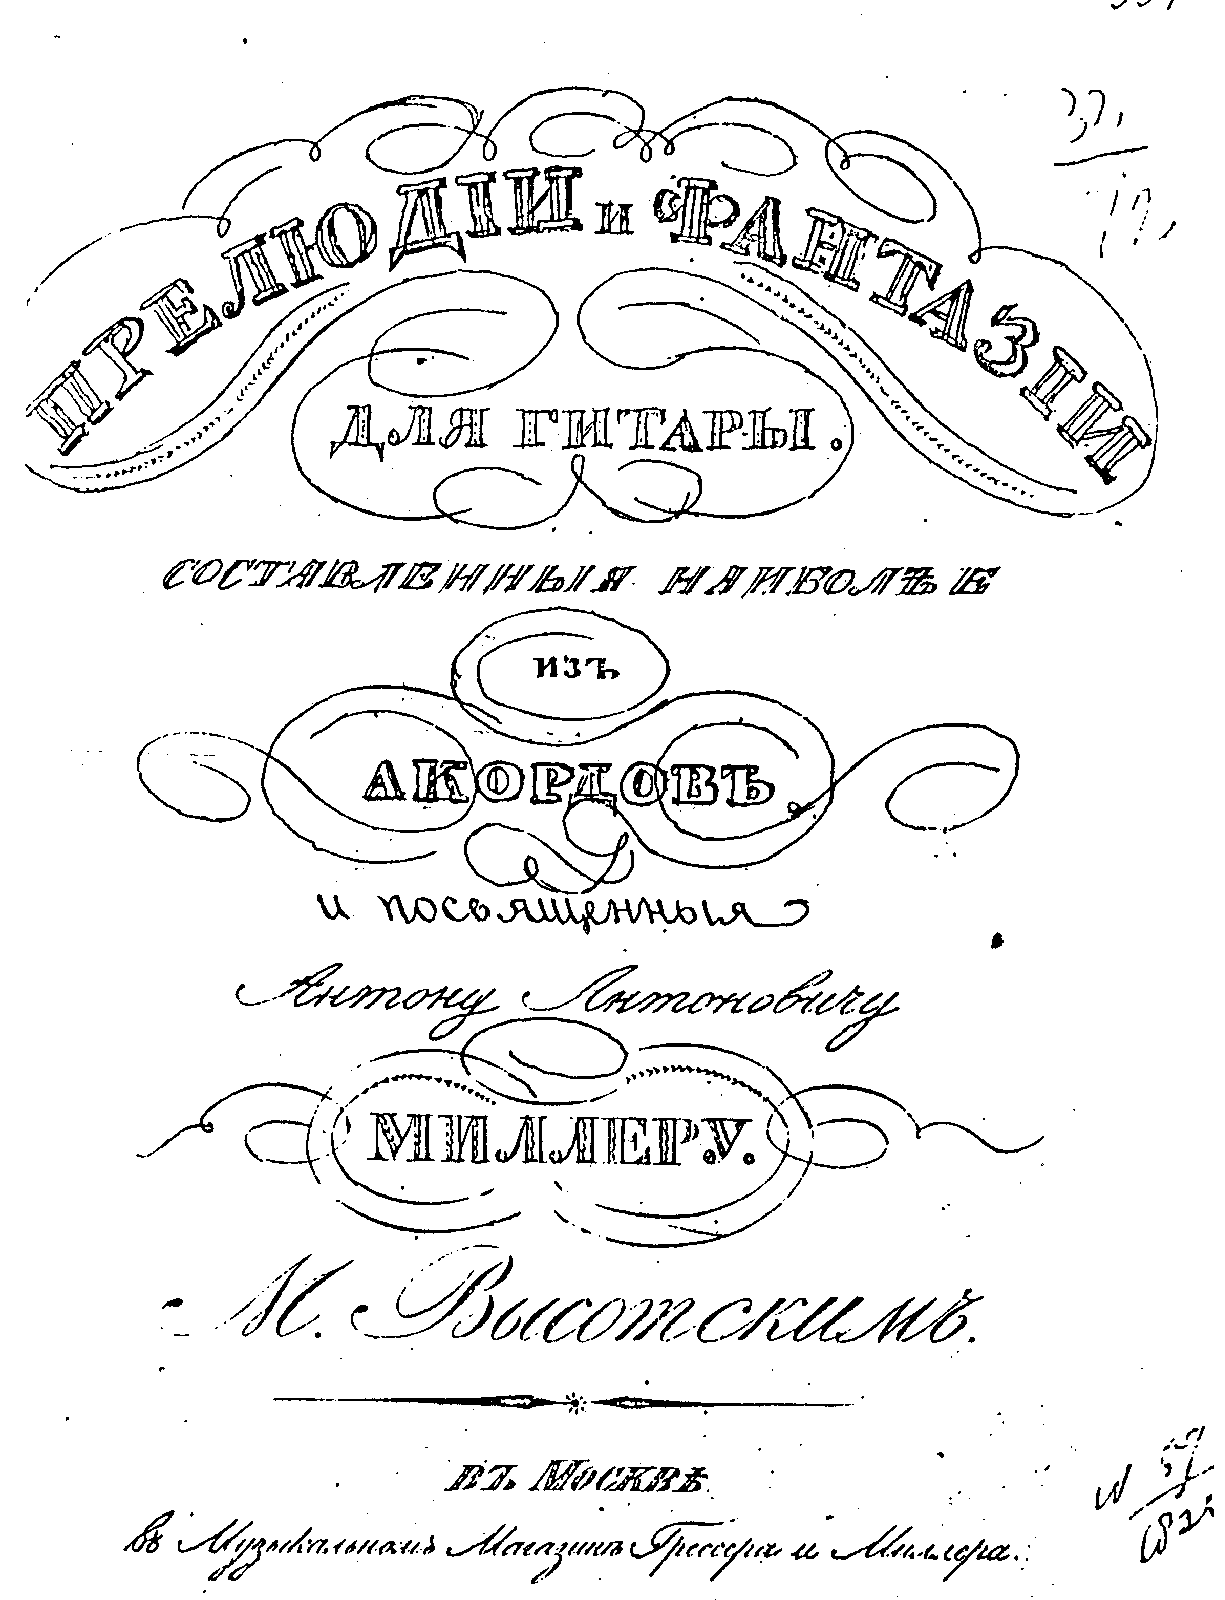 ПРЕЛЮДІИ и ФАНТАЗІИ
ДЛЯ ГИТАРЫ.
СОСТАВЛЕННЫЯ НАИБОЛѢЕ
ИЗЪ
АКОРДОВЪ,
и посвященныя
Антону Антоновичу
МИЛЛЕРУ.
М. Высотскимъ.
ВЪ МОСКВѢ
въ Музыкальномъ Магазинѣ Грессера и Миллера.